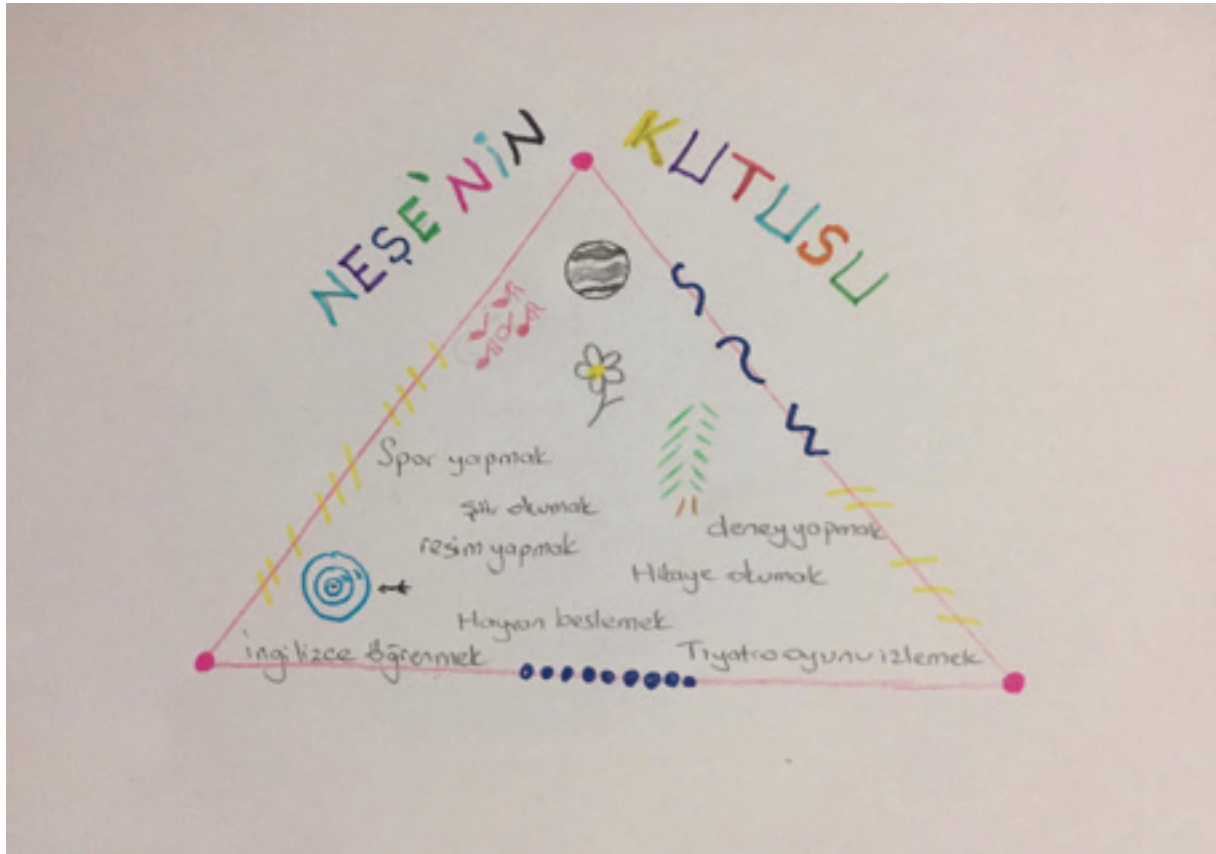 NEŞE'NİN KUTUSU
Spor yapmak
şiir okumak
resim yapmak
deney yapmak
Hikaye okumak
Hayvan beslemek
İngilizce öğrenmek
Tiyatro oyunu izlemek